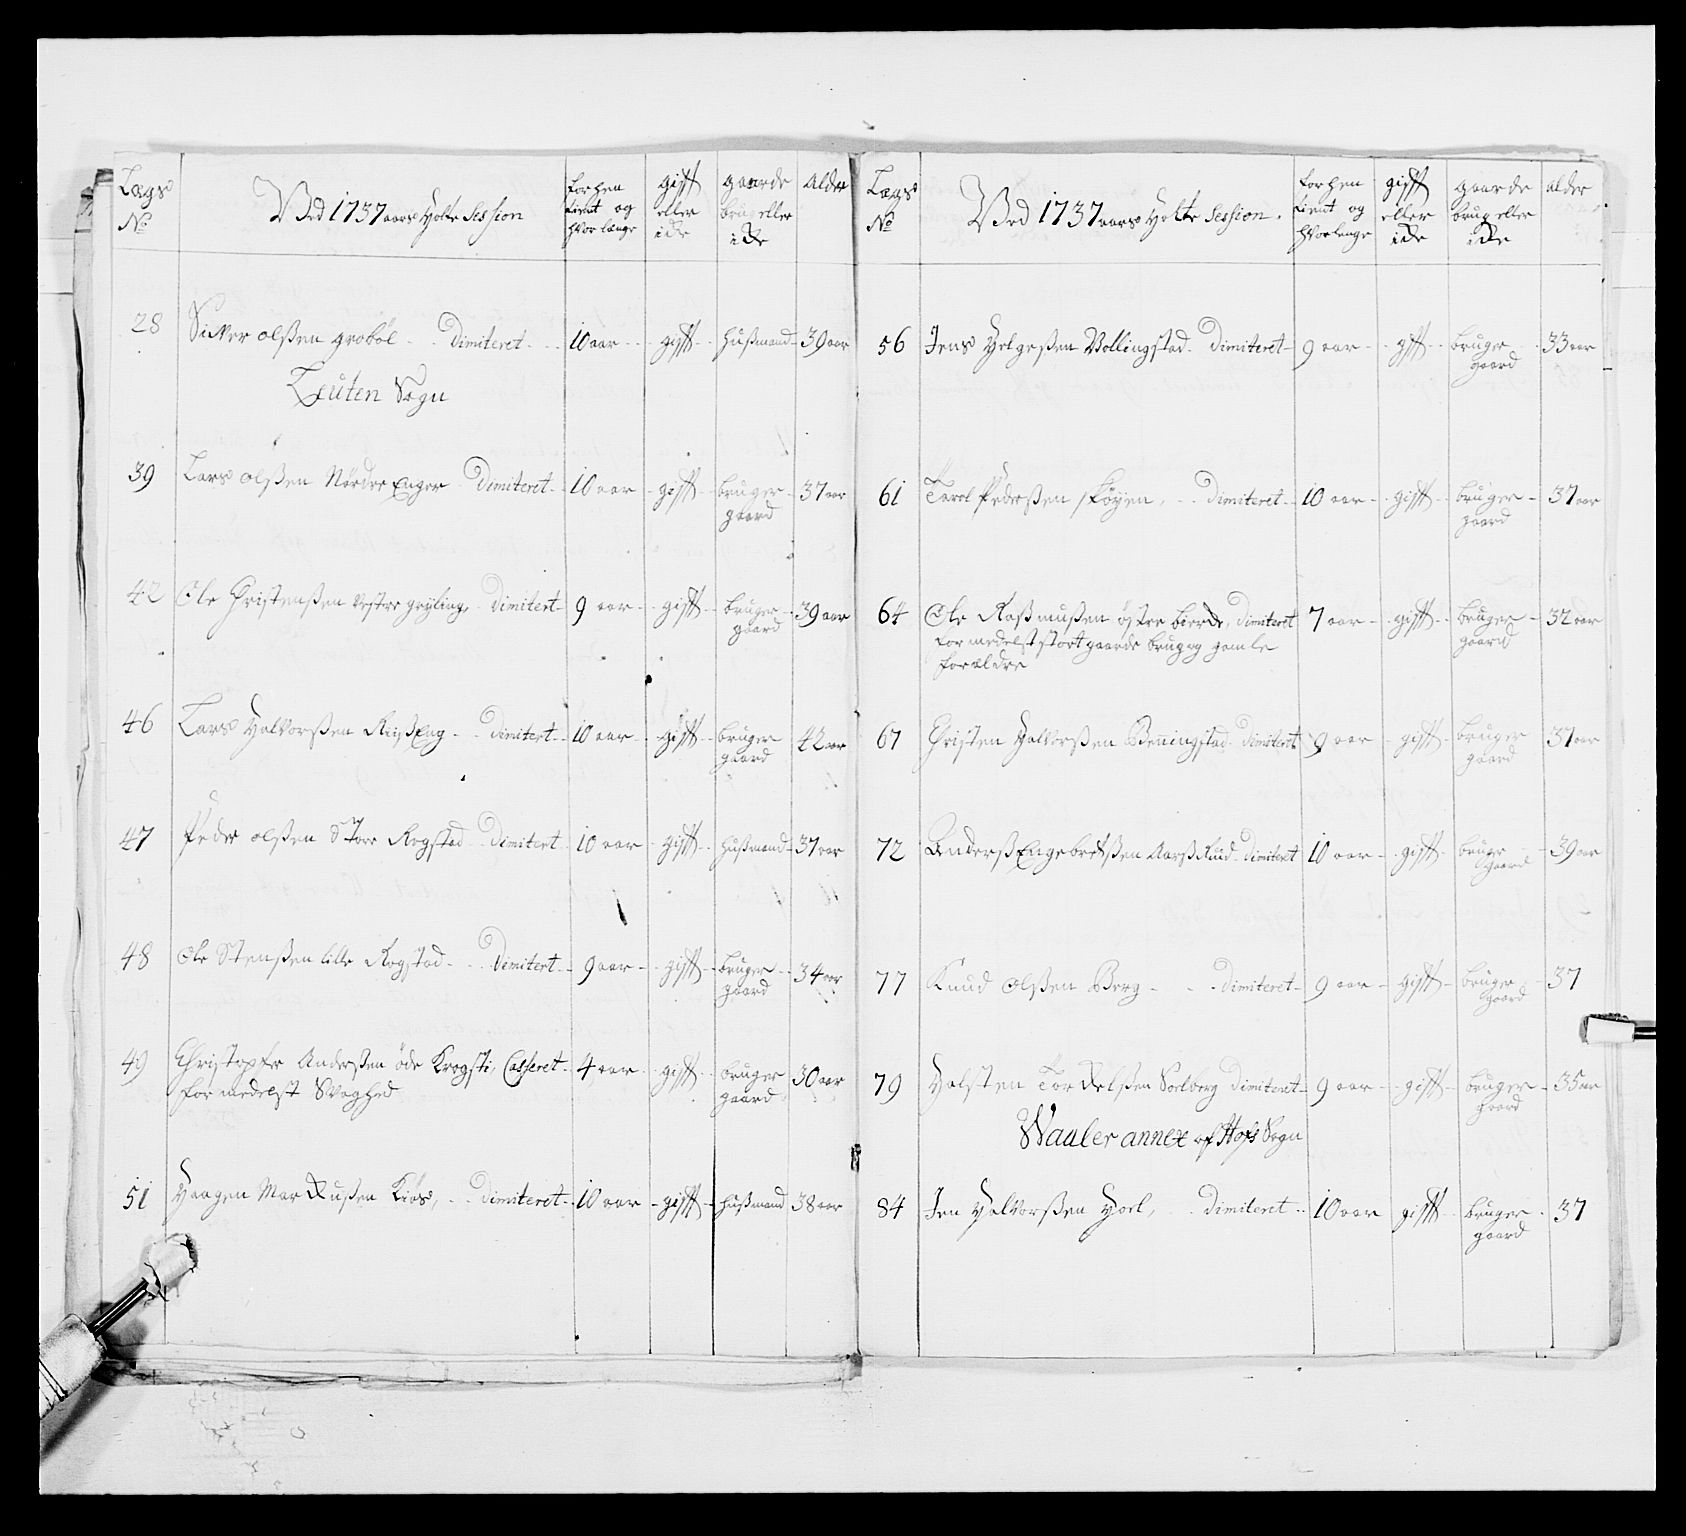 Lægs No
Ved 1737 aars Holte Session
forhen tient og hvor længe
gifft eller icke
gaarde brug eller icke
Alder
28 Siver olßen grobøl - Dimiteret - 10 aar - gifft - hußmand - 39 aar
Leuten Sogn
39 Lars olßen Nordre Enger Dimiteret - 10 aar - gifft - bruger gaard - 37 aar
42 Ole Christenßen Vestre gryling, Dimitert - 9 aar - gifft - bruger gaard - 39 aar
46 Lars Halvorßen Riißeng - Dimitert - 10 aar - gifft - bruger gaard - 42 aar
47 Peder olßen Store Rogstad - Dimitert 10 aar - gifft - hußmand - 37 aar
48 Ole Stenßen lille Rogstad - Dimitert - 9 aar - gifft - bruger gaard - 34 aar
49 Christopfr Anderßen öde Krogsti, Casseret - 4 aar - gifft - bruger gaard - 30 aar
formedelst Svaghed
51 Haagen Marckußen Kiøs, - Dimiteret - 10 aar - gifft - hußmand 38 aar
Lægs No
Ved 1737 aars Holte Session.
forhen tient og hvorlenge
gifft eller icke
gaarde brug eller icke
alder
56 Jens Helgeßen Vollingstad - Dimiteret - 9 aar - gifft - bruger gaard - 33 aar
61 Taral Pederßen skøyen, - Dimiteret - 10 aar - gifft - bruger gaard - 37 aar
64 Ole Raßmußen østre bierde, Dimiteret 7 aar - gifft - bruger gaard - 32 aar
formedelst stort gaarde brug og gamle
forældre
67 Christen Halvorßen Benningstad - Dimiteret 9 aar - gifft - bruger gaard 37 aar
72 Anderß Engebretßen Aarßrud - dimitert 10 aar - gifft - bruger gaard - 39 aar
77 Knud olßen Berg - - dimiteret - 9 aar - gifft - bruger gaard - 37
79 Halsten Torckelßen Soelberg Dimiteret - 9 aar - gifft - bruger gaard - 35 aar
Waaler annex af Hofs Sogn
84 Jen Halvorßen Hoel, Dimiteret - 10 aar gifft - bruger gaard - 37